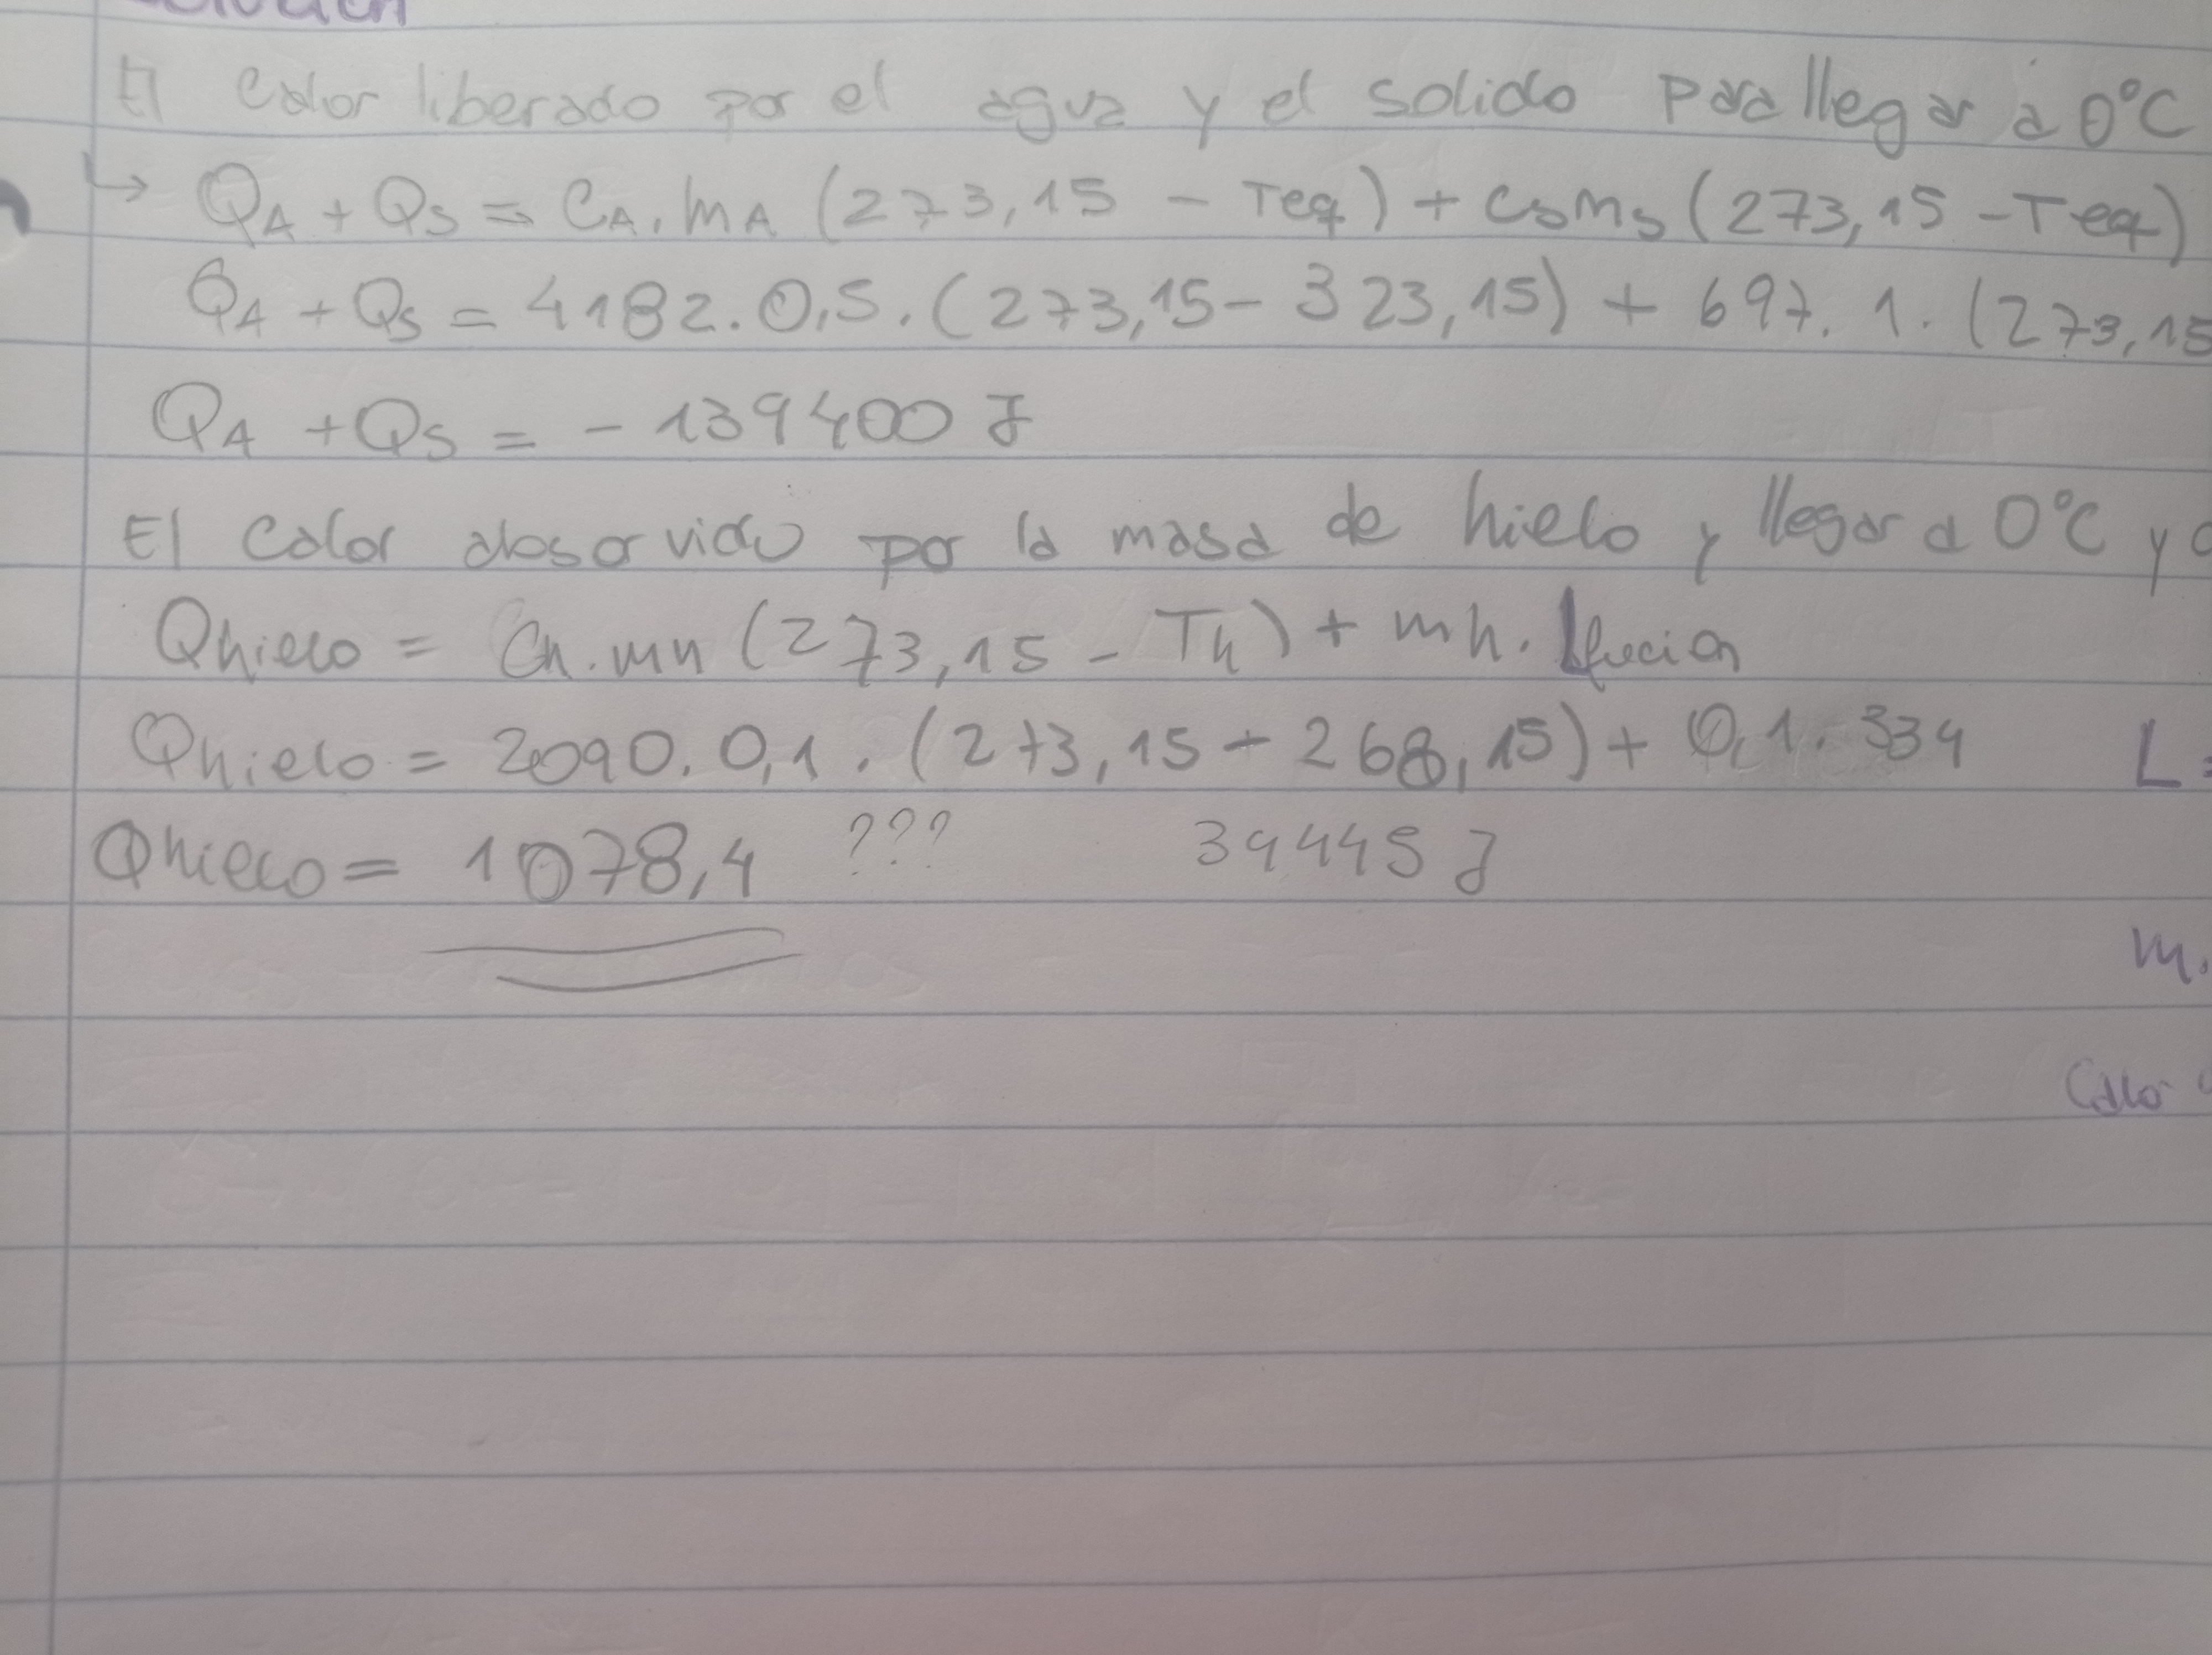 El calor liberado por el agua y el solido para llegar a 0°C
↳ QA + QS = CA.mA (273,15 - Teq) + CsmS (273,15 - Teq)
QA + QS = 4182.0,5.(273,15 - 323,15) + 697.1.(273,15
QA + QS = - 139400 J
El calor absorvido por la masa de hielo y llegar a 0°C y
Qhielo = Ch.mh (273,15 - Th) + mh.Lfucion
Qhielo = 2090.0,1.(273,15 - 268,15) + 0,1.334 L=
Qhielo = 1078,4 ??? 34445 J
m.
Calo